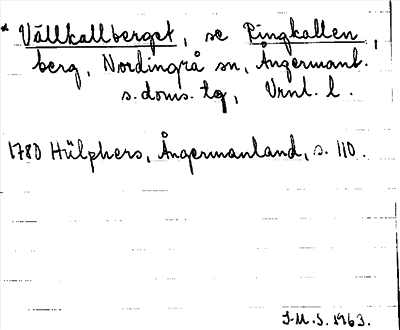 * Vällkallberget, se Ringkallen,
berg, Nordingrå sn, Ångermanl.
s. doms. tg, Vrnl. l.
1780 Hülphers, Ångermanland, s. 110.
I.M.S. 1963.